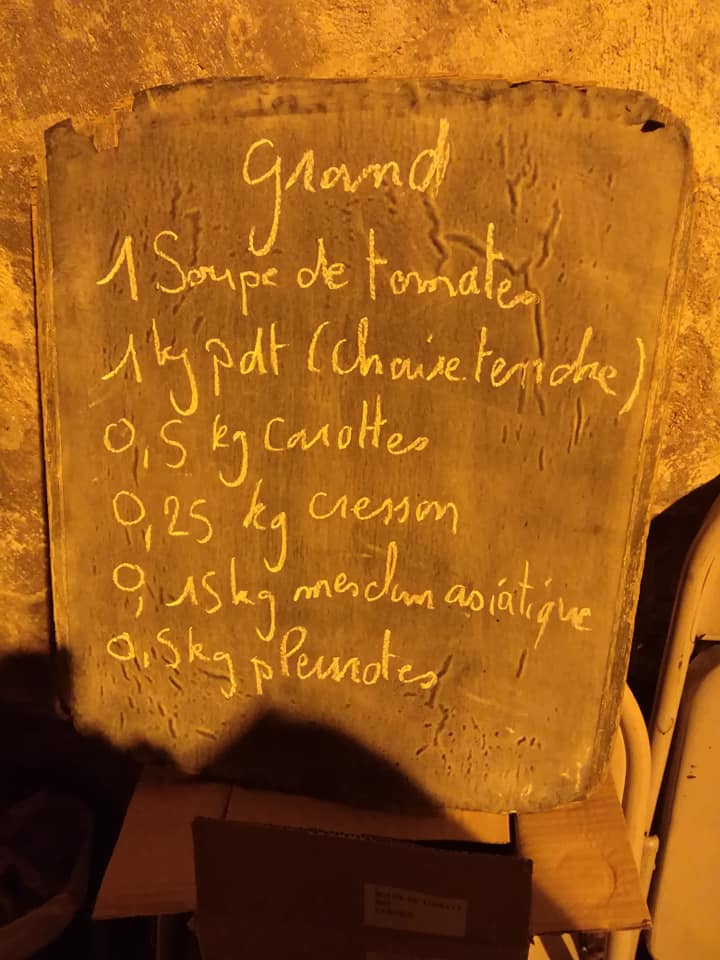 Grand
1 Soupe de tomates
1 kg pdt (chair tendre)
0,5 kg carottes
0,25 kg cresson
0,15 kg mesclun asiatique
0,5 kg pleurotes